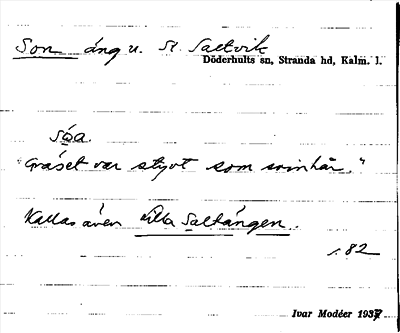 Son äng u. St. Saltvik
Döderhults sn, Stranda hd, Kalm. l.
Sòa.
"Gräset var styvt som svinhår."
Kallas även Lilla Saltängen.
s. 82
Ivar Modéer 1937